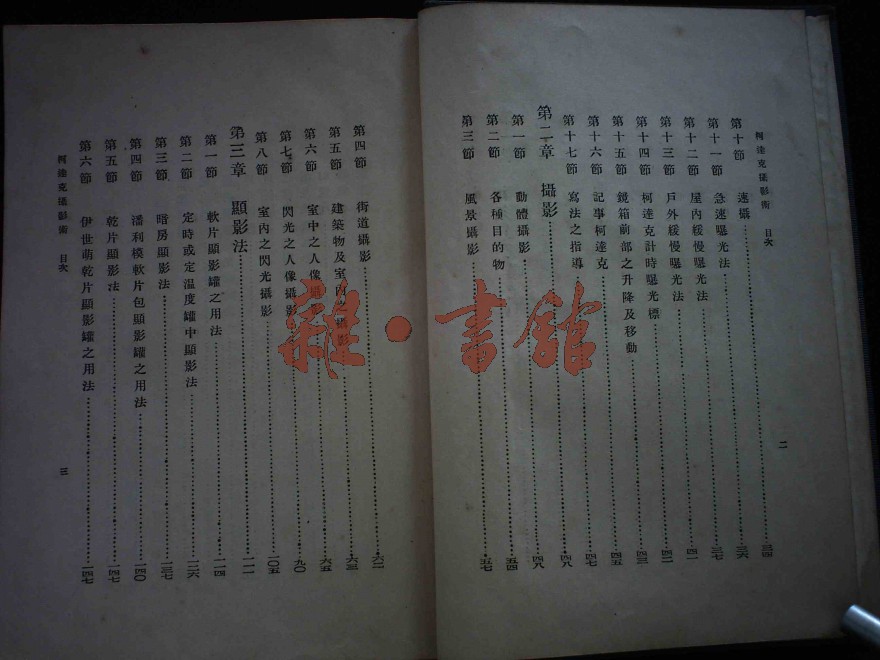 柯達克攝影術 目次 二
第十節 速攝 三四
第十一節 急速曝光法 三六
第十二節 屋內緩慢曝光法 三七
第十三節 戶外緩慢曝光法 四一
第十四節 柯達克計時曝光標 四二
第十五節 鏡箱前部之升降及移動 四三
第十六節 記事柯達克 四五
第十七節 寫法之指導 四七
第二章 攝影 四八
第一節 動體攝影 四八
第二節 各種目的物 五四
第三節 風景攝影 五七
第四節 街道攝影 六二
第五節 建築物及室內之攝影 六三
第六節 室中之人像攝影 六五
第七節 閃光之人像攝影 九〇
第八節 室內之閃光攝影 一〇五
第三章 顯影法
第一節 軟片顯影罐之用法 一一四
第二節 定時或定溫度罐中顯影法 一二六
第三節 暗房顯影法 一三七
第四節 潘利模軟片包顯影罐之用法 一四〇
第五節 乾片顯影法 一四七
第六節 伊世萌乾片顯影罐之用法 一四七
柯達克攝影術 目次 三
雜·書館